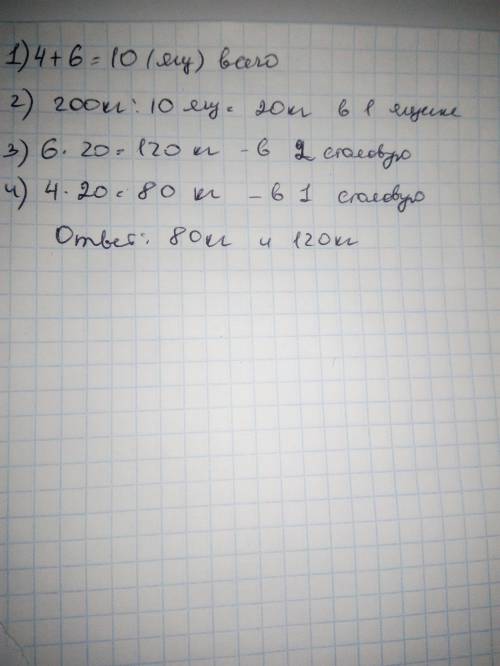 1) 4 + 6 = 10 (ящ) всего
2) 200кг : 10 ящ = 20кг в 1 ящике
3) 6 · 20 = 120 кг - в 2 столовую
4) 4 · 20 = 80 кг - в 1 столовую
Ответ: 80кг и 120кг